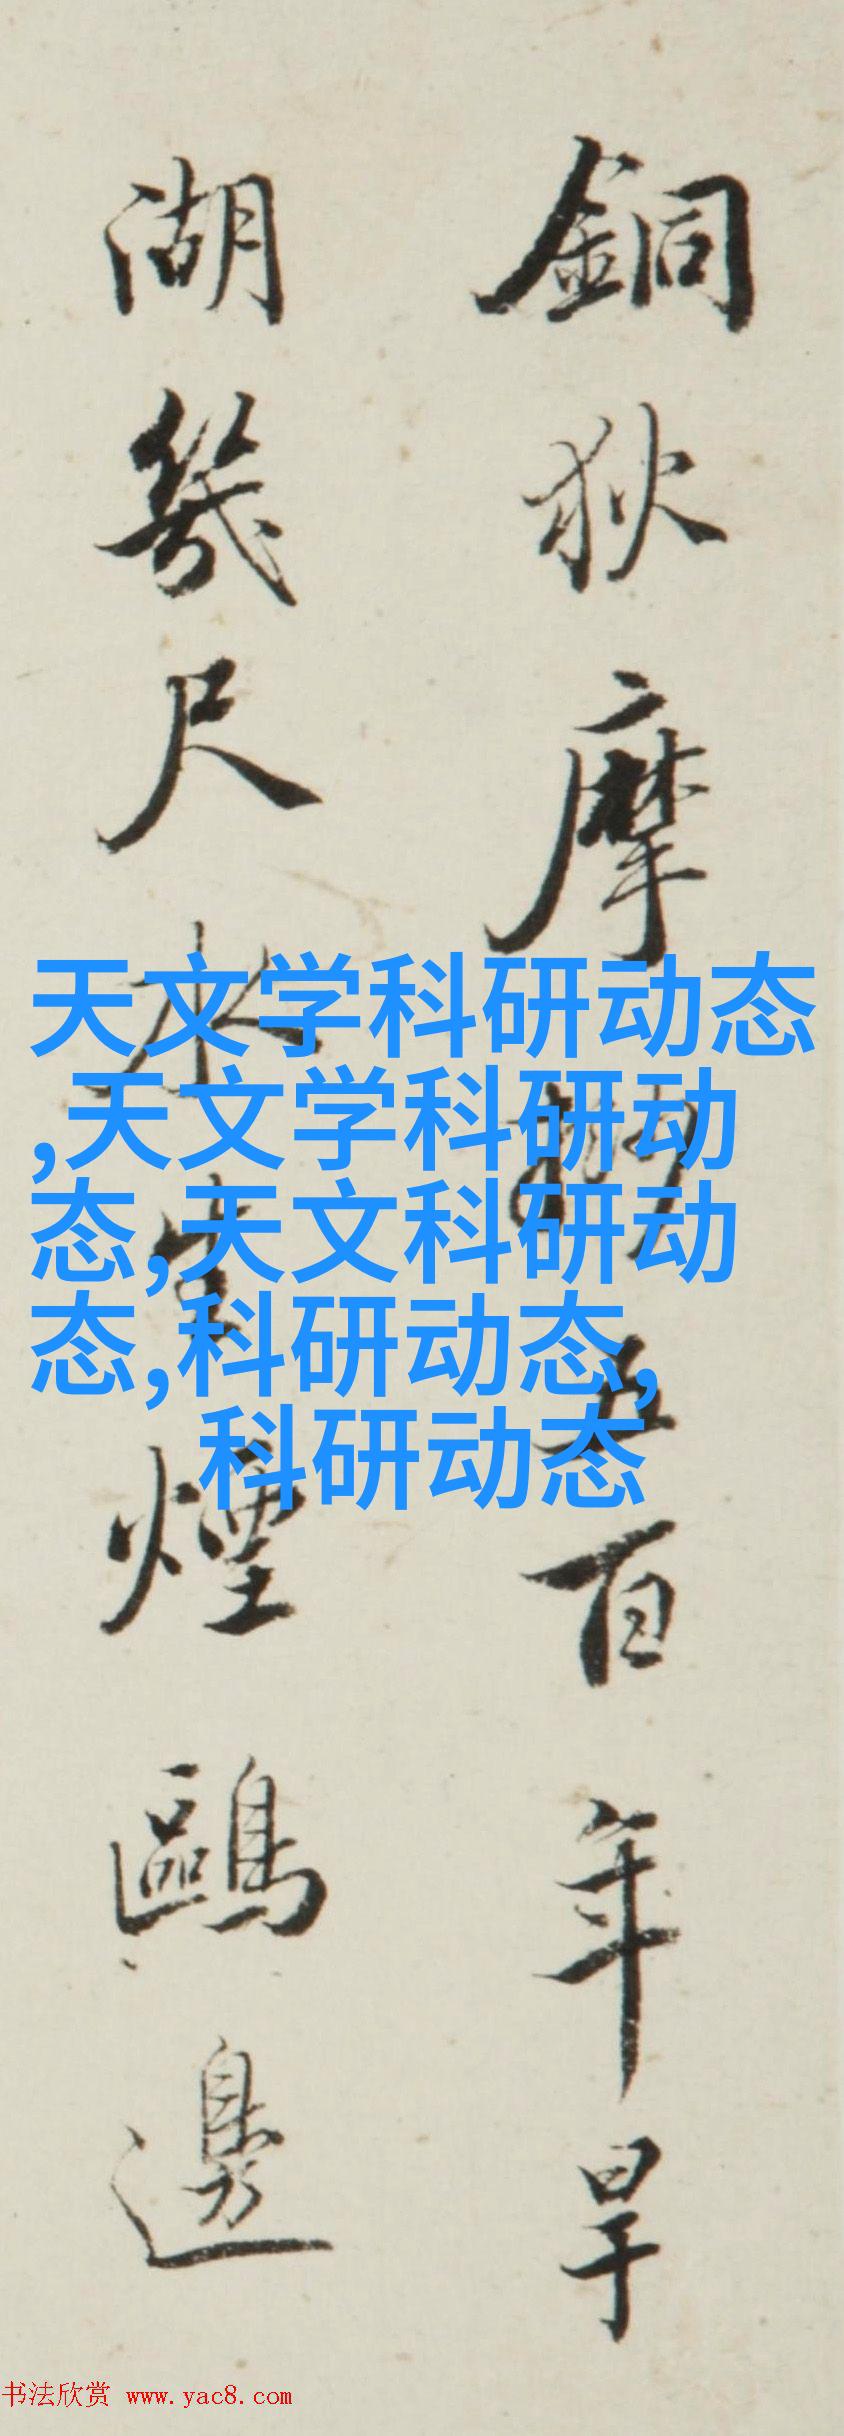 銅狄摩挲五百年旱
湖幾尺水生煙鷗邊
天文学科研动态
,天文学科研动
态,天文科研动
态,科研动态,
科研动态
书法欣赏 www.yac8.com